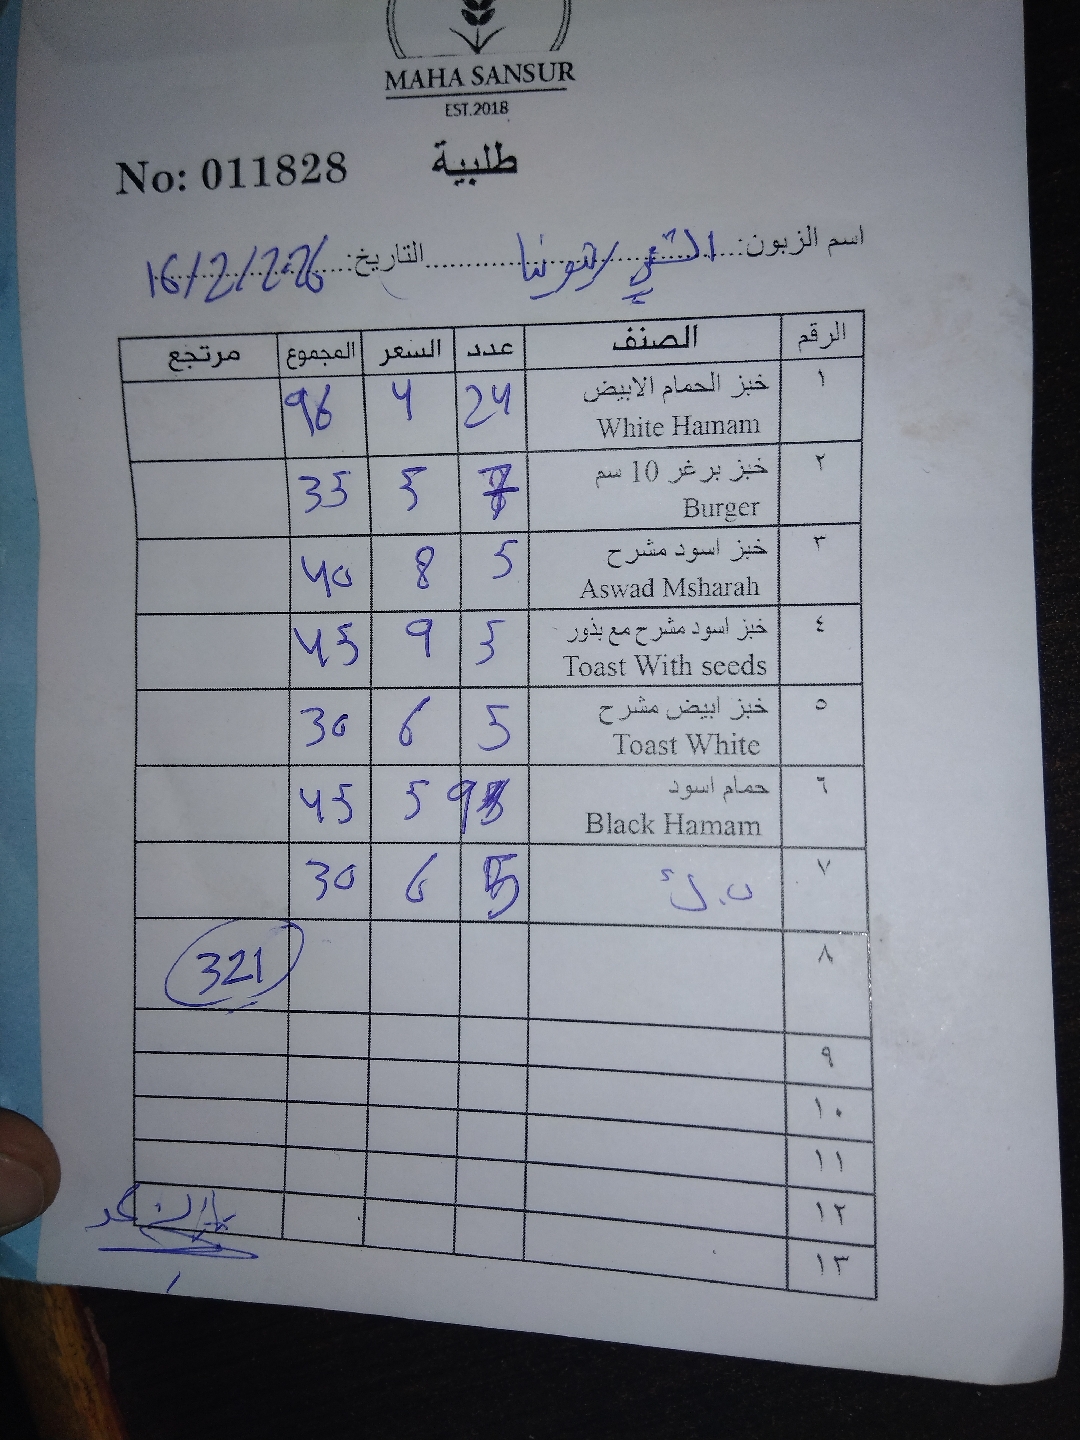 MAHA SANSUR
EST.2018
No: 011828 طلبية
اسم الزبون: التاريخ: 16/2/2026
الرقم الصنف عدد السعر المجموع مرتجع
١ خبز الحمام الابيض 24 4 96
White Hamam
٢ خبز برغر 10 سم 7 5 35
Burger
٣ خبز اسود مشرح 5 8 40
Aswad Msharah
٤ خبز اسود مشرح مع بذور 5 9 45
Toast With seeds
٥ خبز ابيض مشرح 5 6 30
Toast White
٦ حمام اسود 9 5 45
Black Hamam
٧ 5 6 30
٨ 321
٩
١٠
١١
١٢
١٣